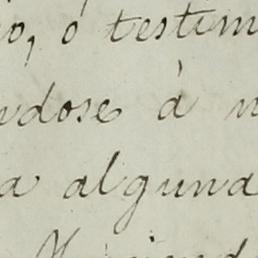 o, ó testim
ndose á n
a alguna